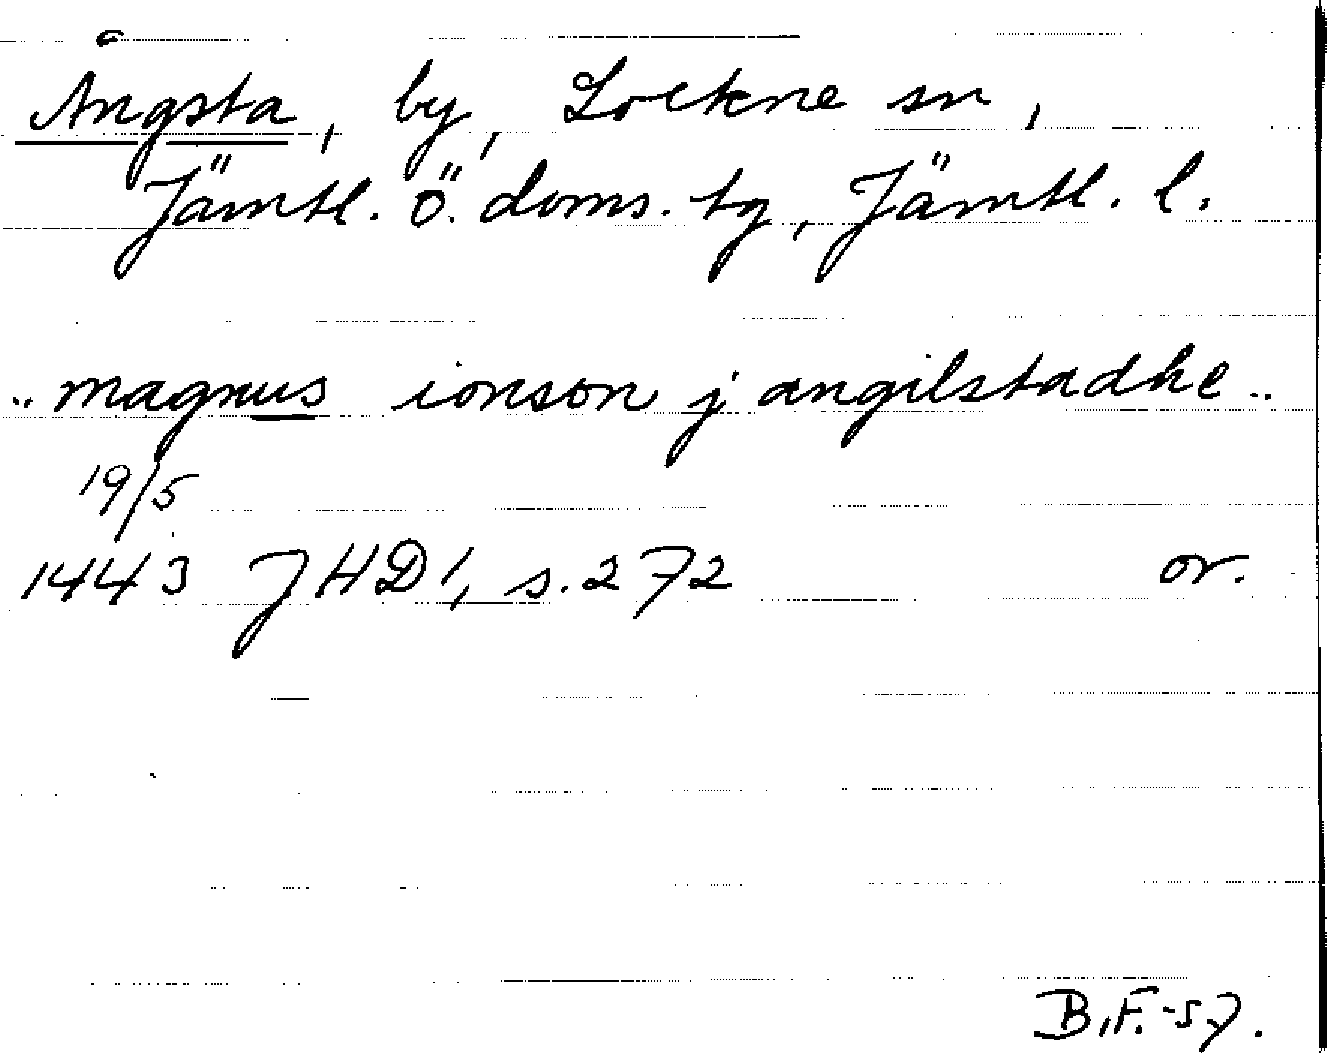 Ångsta, by, Lockne sn,
Jämtl. ö. doms. tg, Jämtl. l.
.. magnus ionson j angilstadhe ..
19/5
1443 JHD 1, s. 272 or.
B.F.-57.